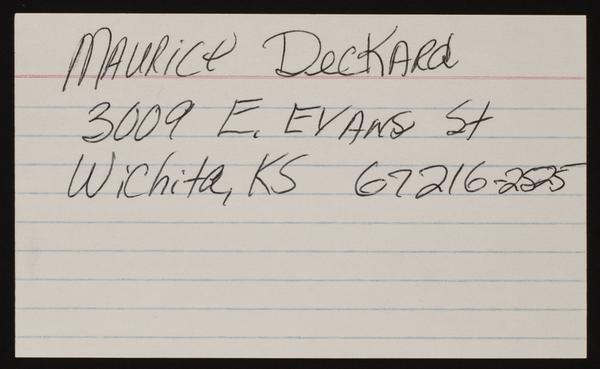 Maurice Deckard
3009 E. Evans St
Wichita, KS 67216-2525